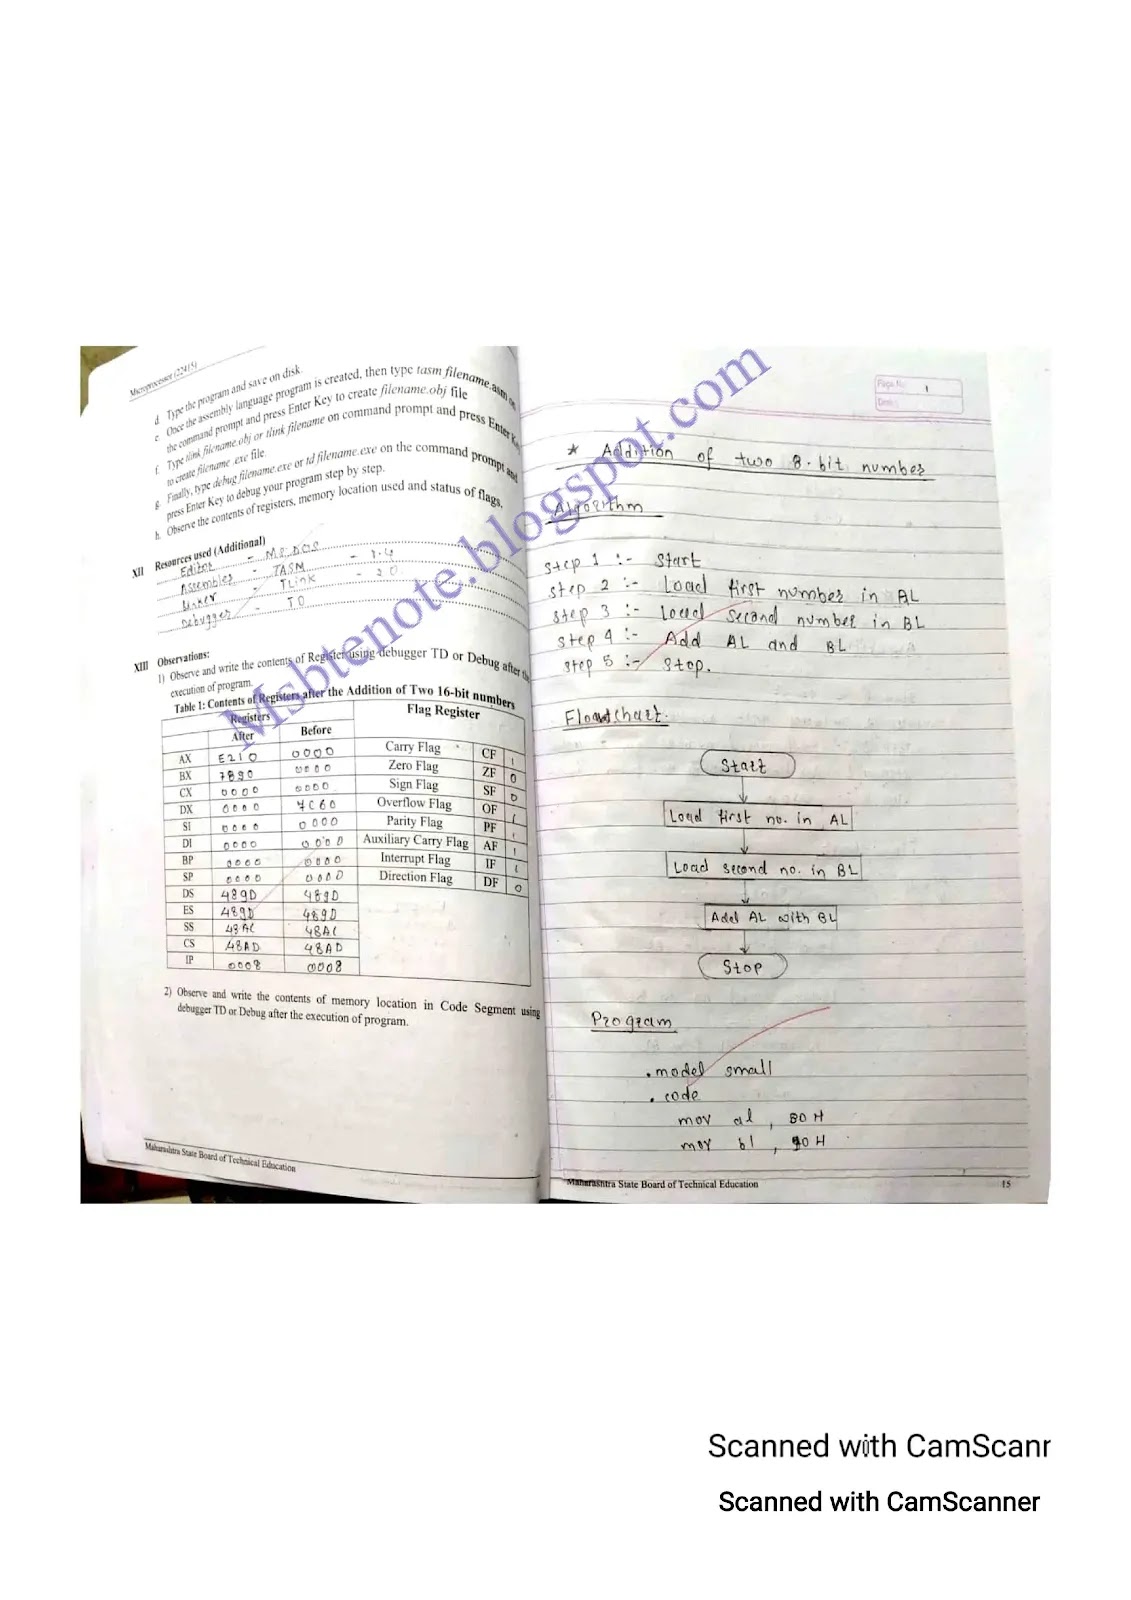 Microprocessor (22415)
d. Type the program and save on disk.
e. Once the assembly language program is created, then type tasm filename.asm on
the command prompt and press Enter Key to create filename.obj file
f. Type tlink filename.obj or tlink filename on command prompt and press Enter Key
to create filename .exe file.
g. Finally, type debug filename.exe or td filename.exe on the command prompt and
press Enter Key to debug your program step by step.
h. Observe the contents of registers, memory location used and status of flags.
XII Resources used (Additional)
Editor - MS DOS
Assembler - TASM - 1.4
Linker - TLink - 2.0
Debugger - TD
XIII Observations:
1) Observe and write the contents of Register using debugger TD or Debug after the
execution of program.
Table 1: Contents of Registers after the Addition of Two 16-bit numbers
Registers Flag Register
After Before
AX E210 0000 Carry Flag CF 1
BX 7890 0000 Zero Flag ZF 0
CX 0000 0000 Sign Flag SF 0
DX 0000 4C60 Overflow Flag OF 1
SI 0000 0000 Parity Flag PF 1
DI 0000 0000 Auxiliary Carry Flag AF 1
BP 0000 0000 Interrupt Flag IF 1
SP 0000 0000 Direction Flag DF 0
DS 489D 489D
ES 489D 489D
SS 48AC 48AC
CS 48AD 48AD
IP 0008 0008
2) Observe and write the contents of memory location in Code Segment using
debugger TD or Debug after the execution of program.
Maharashtra State Board of Technical Education
Msbtenote.blogspot.com
Page No. 1
Date:
* Addition of two 8-bit number
Algorithm
Step 1 :- Start
Step 2 :- Load first number in AL
Step 3 :- Load second number in BL
Step 4 :- Add AL and BL
Step 5 :- Stop.
Flowchart.
Start
Load first no. in AL
Load second no. in BL
Add AL with BL
Stop
Program
.model small
.code
mov al, 80H
mov bl, 90H
Maharashtra State Board of Technical Education 15
Scanned with CamScanr
Scanned with CamScanner